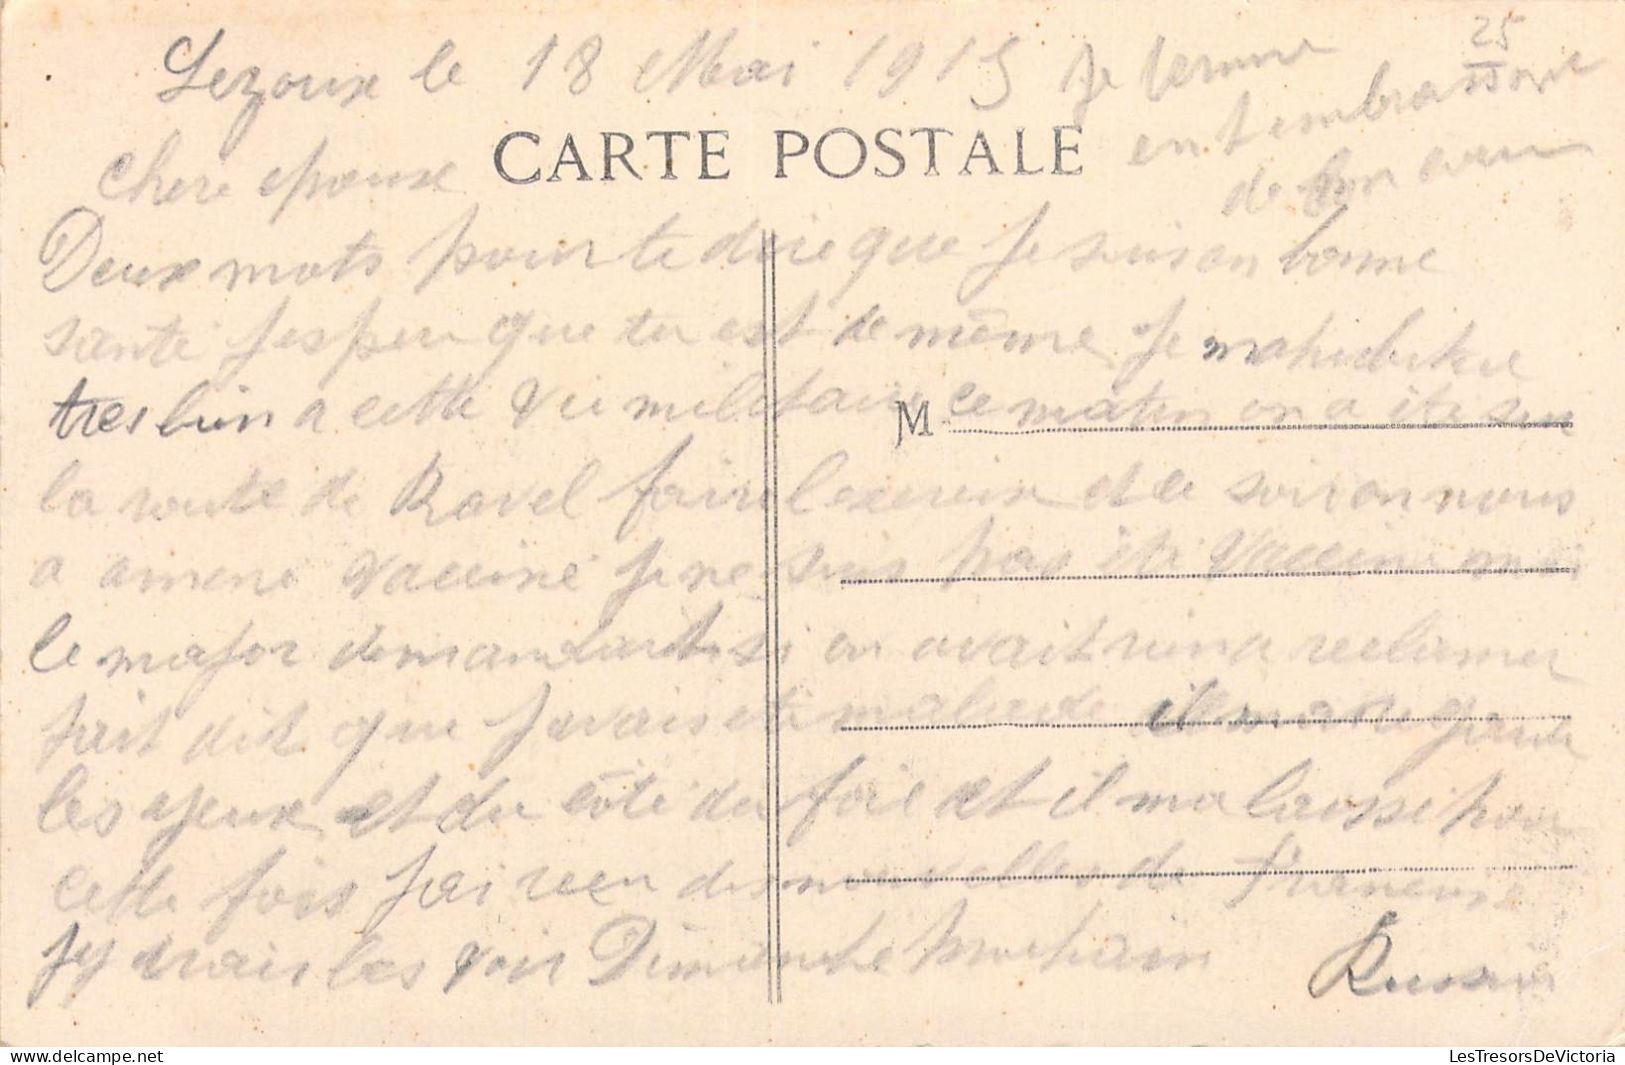 25
Lezoux le 18 Mai 1915
CARTE POSTALE
Chere epouse
Deux mots pour te dire que je suis en bonne
sante j espere que tu est de même Je mahabitue
tres bien a cette vie militaire ce matin on a ete sur
M
la route de Ravel faire lexercice et le soir on nous
a amené vacciné je ne suis pas été vacciné moi
le major demandait si on avait rien a reclamer
jait dit que javais été malade il ma regardé
les yeux et du côté du foie et il ma laissé pour
cette fois jai recu des nouvelles de Francine
jy vrais les voir Dimanche prochain
Je termine
en t embrassant
de bon
LesTresorsDeVictoria
https://www.delcampe.net